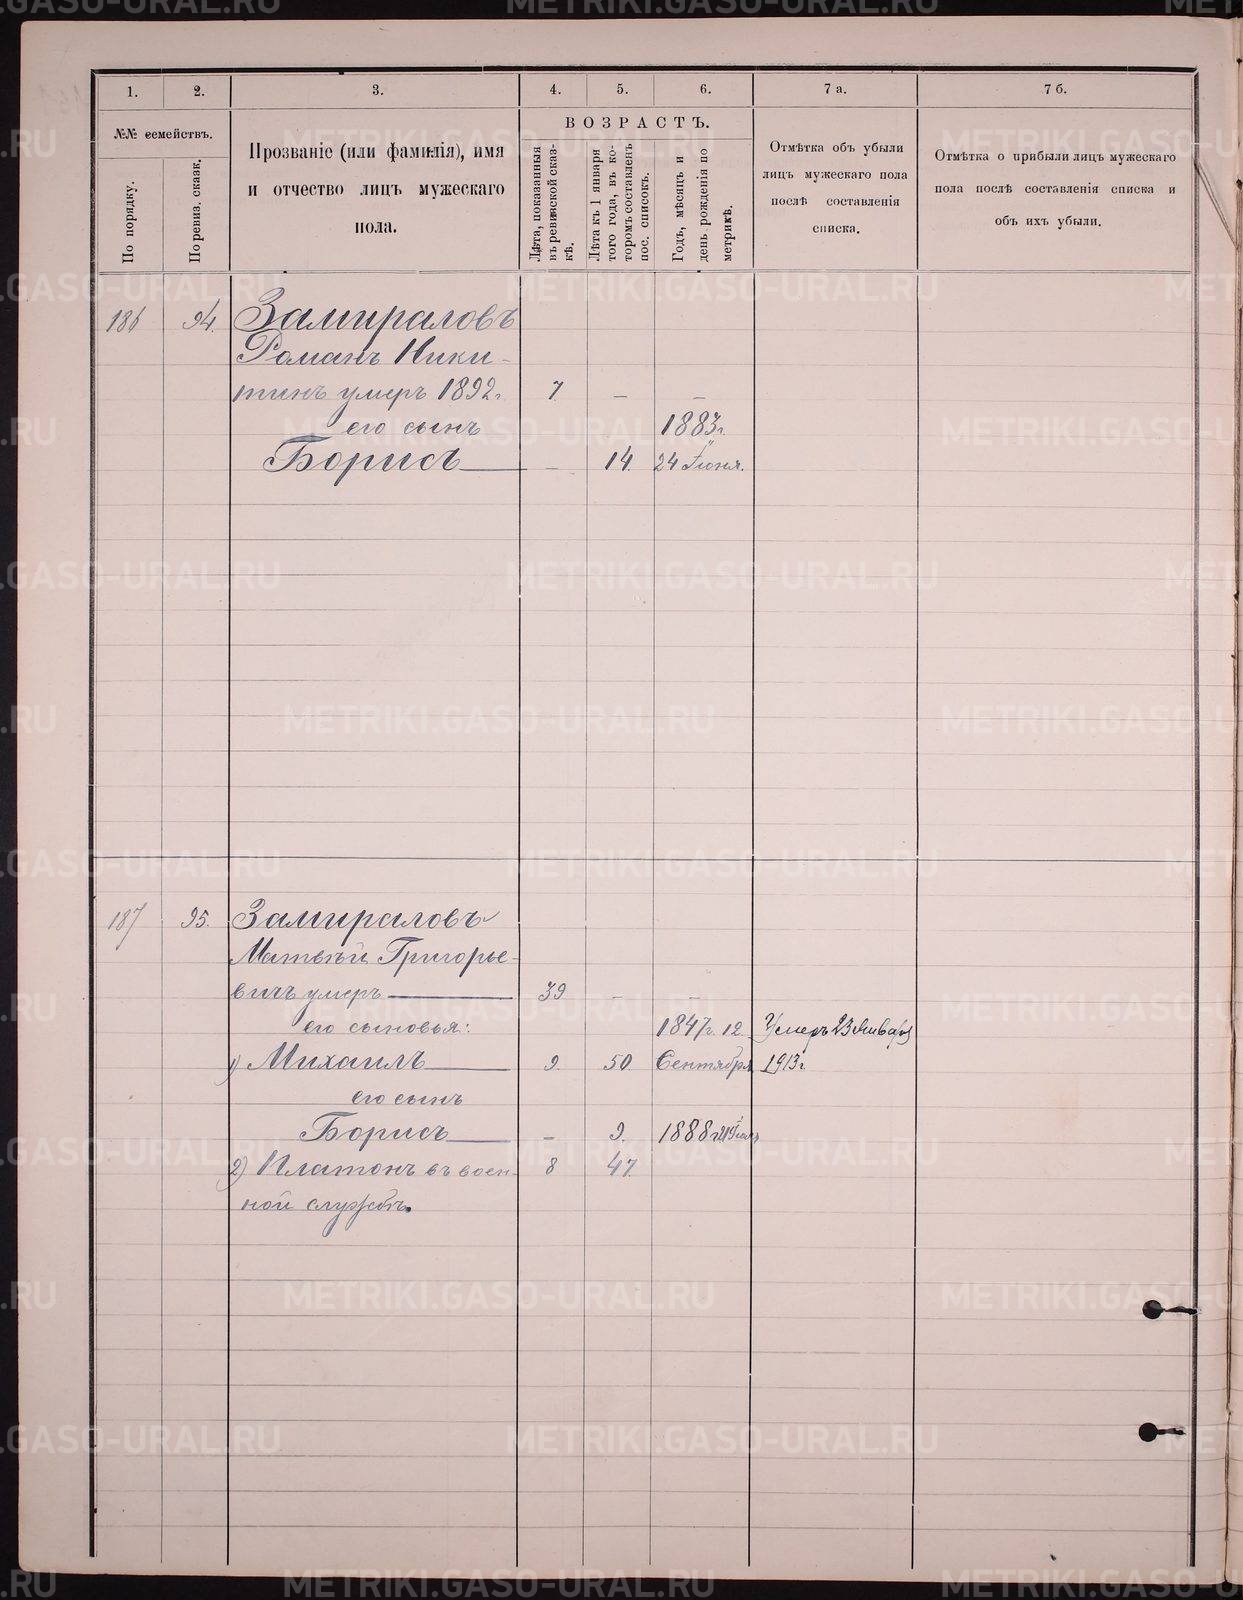 1. 2. 3. 4. 5. 6. 7 а. 7 б.
№№ семействъ.
По порядку.
По ревиз. сказк.
Прозваніе (или фамилія), имя
и отчество лицъ мужескаго
пола.
ВОЗРАСТЪ.
Лѣта, показанныя
въ ревизской сказ-
кѣ.
Лѣта къ 1 января
того года, въ ко-
торомъ составленъ
пос. списокъ.
Годъ, мѣсяцъ и
день рожденія по
метрикѣ.
Отмѣтка объ убыли
лицъ мужескаго пола
послѣ составленія
списка.
Отмѣтка о прибыли лицъ мужескаго
пола послѣ составленія списка и
объ ихъ убыли.
186 94. Замираловъ
Романъ Ники-
тинъ умеръ 1892 г. 7 — —
его сынъ 1883 г.
Борисъ — — 14. 24 Іюня.
187 95. Замираловъ
Матвѣй Григорье-
вичъ умеръ — 39 — —
его сыновья: 1847 г. 12 Умеръ 23 Января
1) Михаилъ — 9. 50 Сентября 1913 г.
его сынъ
Борисъ — — 9. 1888 г. 21
2) Платонъ въ воен- 8 47.
ной службѣ.
METRIKI.GASO-URAL.RU